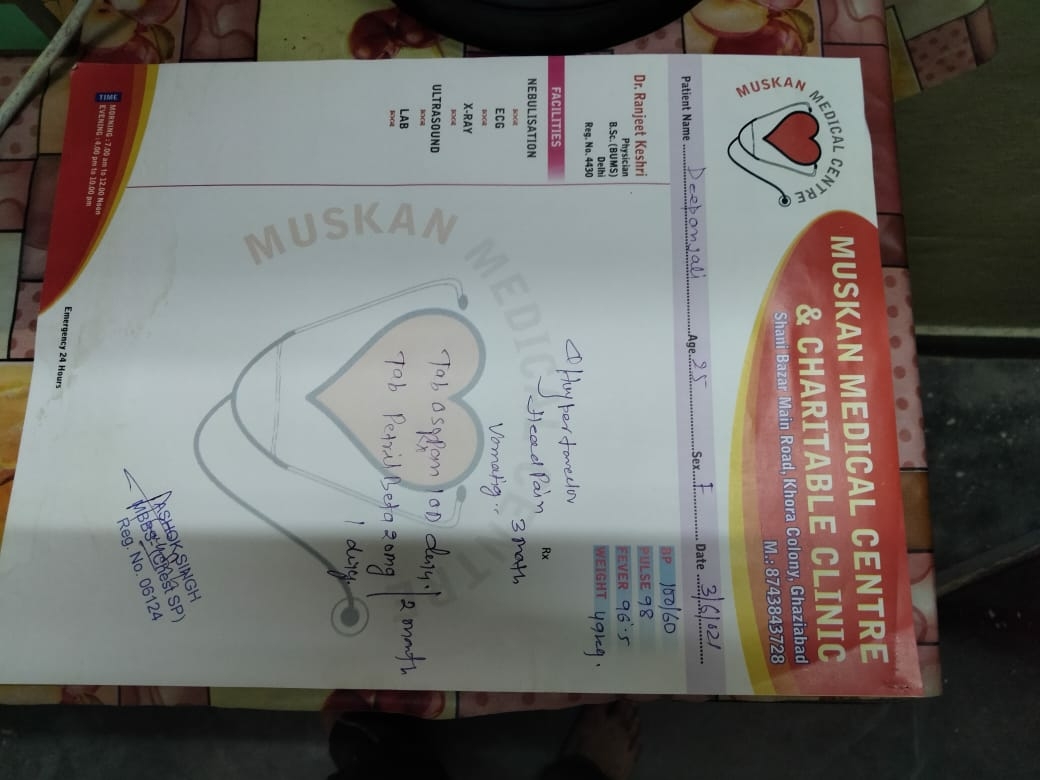 MUSKAN MEDICAL CENTRE
MUSKAN MEDICAL CENTRE
& CHARITABLE CLINIC
Shani Bazar Main Road, Khora Colony, Ghaziabad
M.: 8743843728
Patient Name Deeponjali Age 25 Sex F Date 3/6/021
Dr. Ranjeet Keshri
Physician
B.Sc. (BUMS)
Delhi
Reg. No. 4430
BP 100/60
PULSE 98
FEVER 96.5
WEIGHT 49kg.
FACILITIES
NEBULISATION
ECG
X-RAY
ULTRASOUND
LAB
Rx
Head Pain 3 month
Vomatig..
Tab 10D
Tab Petril Beta 20mg / 2 month
MUSKAN MEDICAL CENTRE
ASHOK SINGH
MBBS (Chest SP)
Reg No. 06124
TIME
MORNING : 7.00 am to 12.00 Noon
EVENING : 4.00 pm to 10.00 pm
Emergency 24 Hours